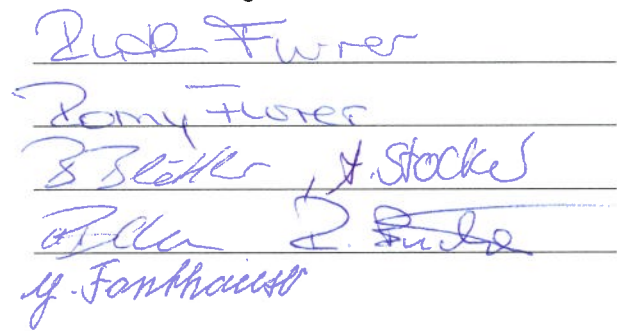 Ruth Furrer
Romy Furrer
B Blättler A. Stocker
R.
Y. Fankhauser